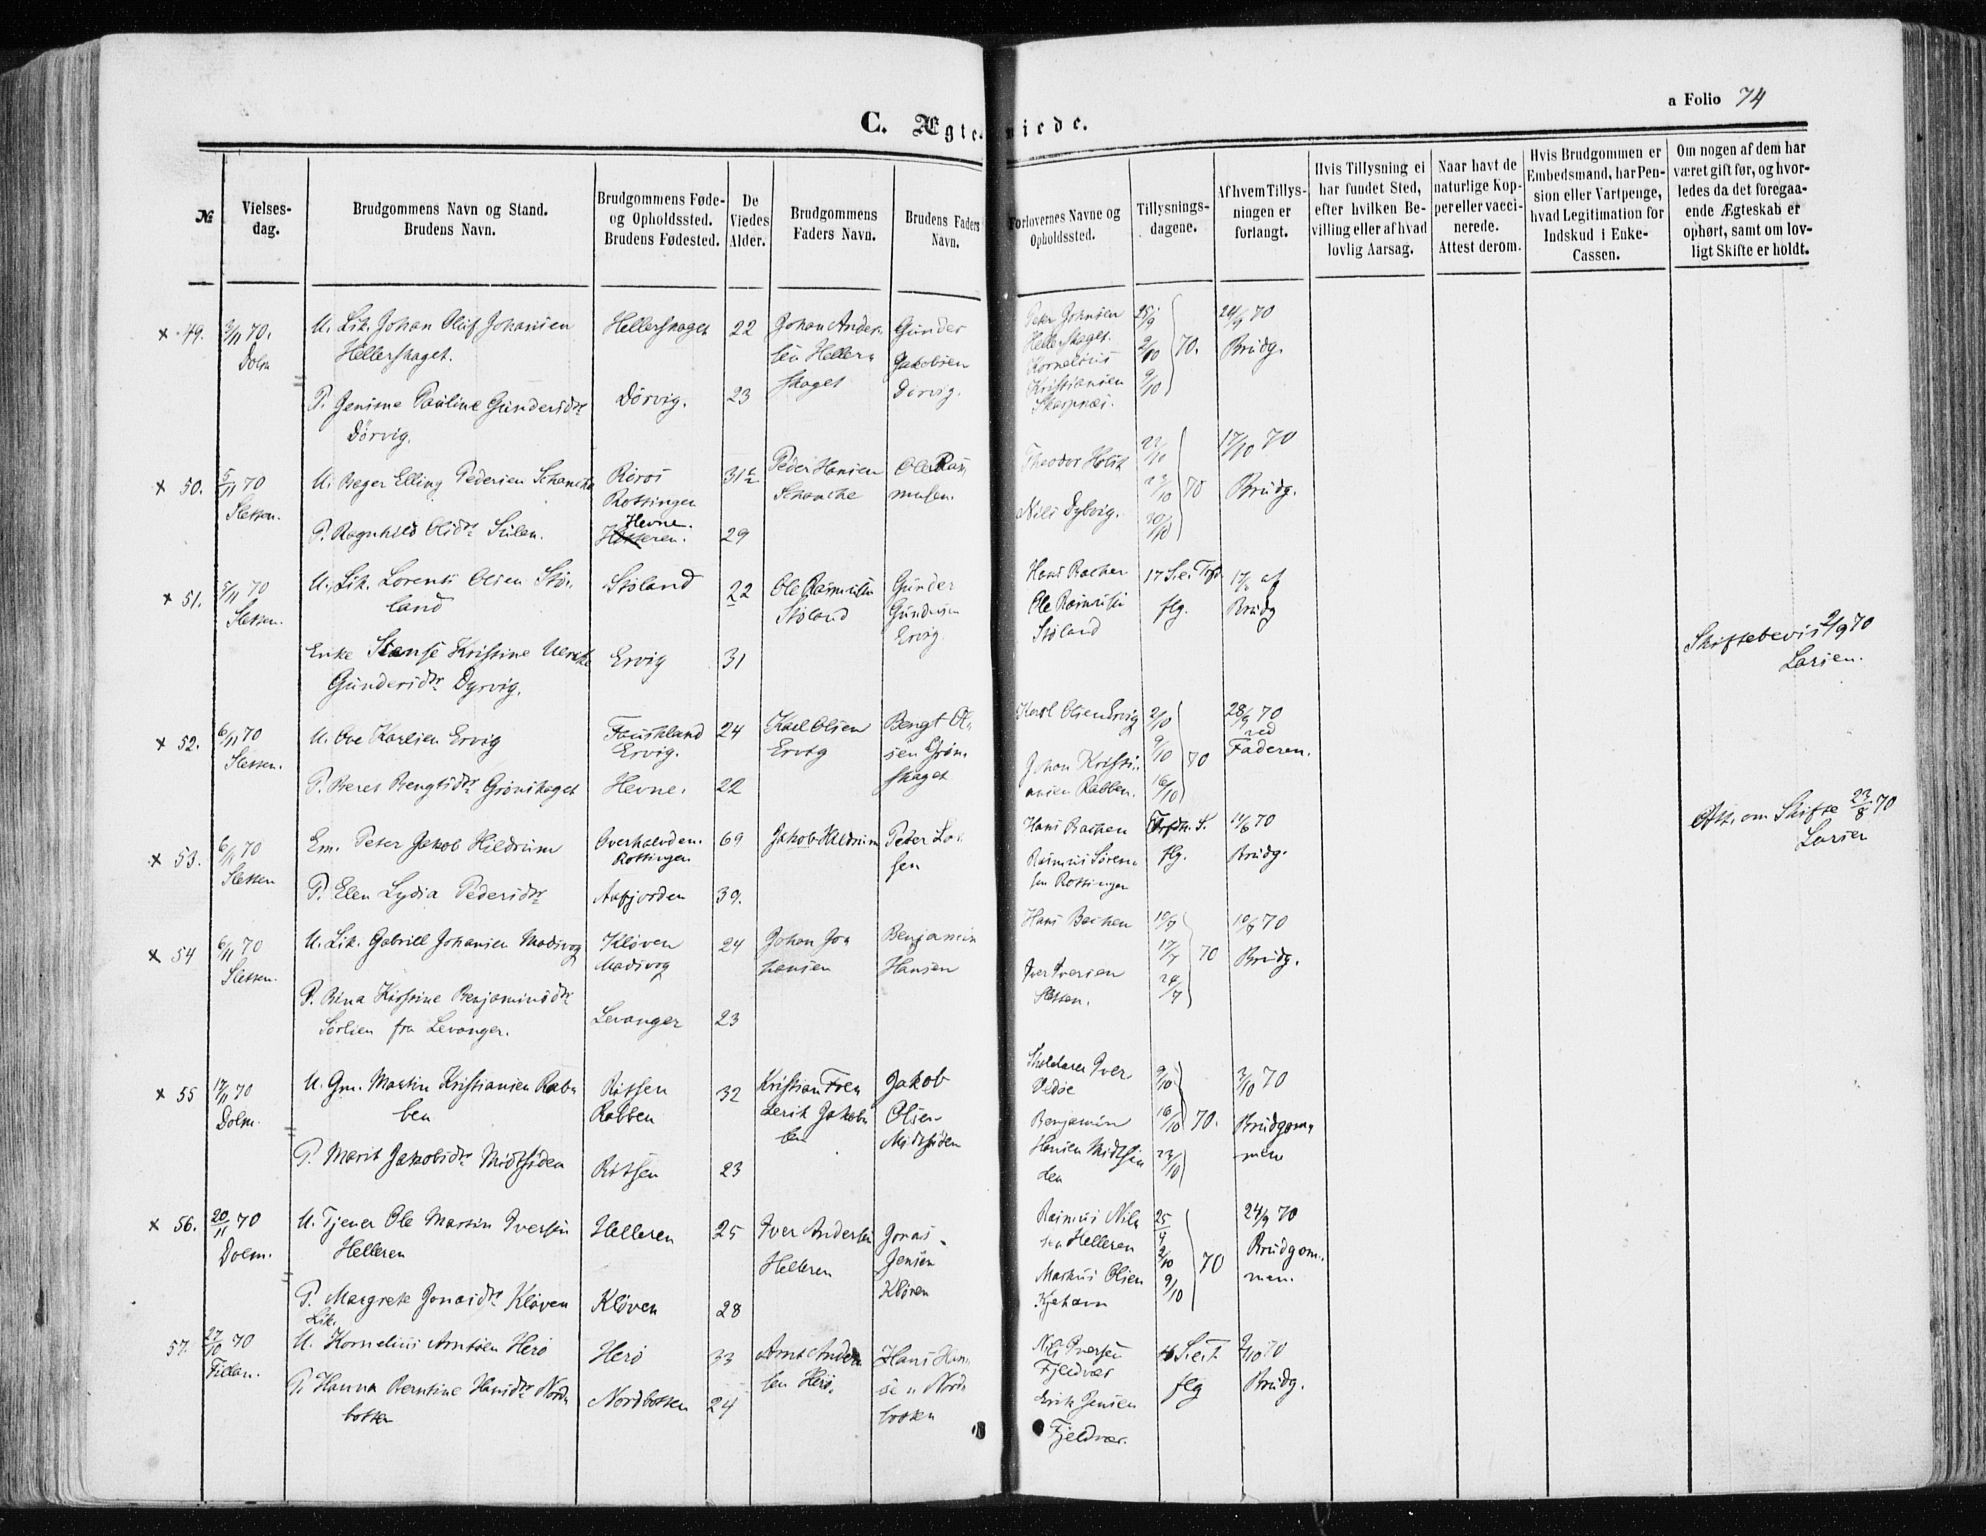 a Folio 74
C. Ægteviede.
№
Vielses-
dag.
Brudgommens Navn og Stand.
Brudens Navn.
Brudgommens Føde-
og Opholdssted.
Brudens Fødested.
De
Viedes
Alder.
Brudgommens
Faders Navn.
Brudens Faders
Navn.
Forlovernes Navne og
Opholdssted.
Tillysnings-
dagene.
Af hvem Tillys-
ningen er
forlangt.
Hvis Tillysning ei
har fundet Sted,
efter hvilken Be-
villing eller af hvad
lovlig Aarsag.
Naar havt de
naturlige Kop-
per eller vacci-
nerede.
Attest derom.
Hvis Brudgommen er
Embedsmand, har Pen-
sion eller Vartpenge,
hvad Legitimation for
Indskud i Enke-
Cassen.
Om nogen af dem har
været gift før, og hvor-
ledes da det foregaa-
ende Ægteskab er
ophørt, samt om lov-
ligt Skifte er holdt.
x 49.
70.
Dolm
U. Lik. Johan Oluf Johansen
Hellerskaget.
P. Jensine Pauline Gundersdtr
Dörvig.
Hellerskaget
Dörvig.
22
23
Johan Ander-
sen Heller-
skaget
Gunder
Jakobsen
Dörvig.
Peter Johnsen
Hellerskaget.
Kornelius
Kristiansen
Skarpnæs.
25/9
2/10
9/10
70.
24/9 70
Brudg.
x 50.
5/11 70
Sletten.
U. Elling Pedersen
P. Ragnhild Olsdtr
Röros
Rottingen
Hevne.
31½
29
Peder Hansen
Ole Ras-
musen.
Theodor Holst
Nils Dylvig.
23/10
30/10
70
17/10 70
Brudg.
x 51.
5/11 70
Sletten.
U. Lik. Lorents Olsen Stö-
land
Enke Kristine
Gundersdtr Dyrvig.
Stöland
Ervig
22
31
Ole Rasmusen
Stöland
Gunder
Gundersen
Ervig
Hans Bachen
Ole
Stöland
17 S. e. Tref.
flg.
17/ af
Brudg
Skiftebevis 2/9 70
Larsen.
x 52.
6/11 70
Sletten.
U. Ove Karlsen Ervig
P. Beret Bengtsdtr Grönskaget
Ervig.
Hevne.
24
22
Karl Olsen
Ervig
Bengt Ol-
sen Grön-
skaget
Karl Olsen Ervig
Johan Kristi-
ansen Rabben.
2/10
9/10
16/10
70
28/9 70
ved
Faderen.
x 53.
6/11 70
Sletten
Em. Peter Jakob Hildrum
P. Elen Lydia Pedersdtr
Overhalvden
Rottingen
Aafjorden
69
39.
Jakob Hildrum
Peter Lar-
sen
Hans Bachen
Rasmus Sören-
sen Rottingen
S.
flg.
70
Brudg.
Att. om Skifte 23/8 70
Larsen
x 54
6/11 70
Sletten.
U. Lik. Gabriel Johansen Madsvog
P. Kirstine Benjaminsdtr
Sörlien fra Levanger.
Klöven
Madsvog
Levanger
24
23
Johan Jo-
hansen
Benjamin
Hansen
Hans Bachen
Iver Iversen
Sletten.
10/7
17/7
24/7
70
10/7 70
Brudg.
x 55
70
Dolm.
U. Gm. Martin Kristiansen Rab-
ben
P. Marit Jakobsdtr Midtsiden
Ritsen
Rabben
Ritsen
32
23
Kristian Fre-
derik Jakob-
sen
Jakob
Olsen
Midtsiden
Skolelærer Iver
Vedöe
Benjamin
Hansen Midtsi-
den
9/10
16/10
23/10
70.
70
Brudgom-
men
x 56.
20/11 70
Dolm.
U. Tjener Ole Martin Iversen
Helleren
P. Margrete Jonasdtr Klöven
Helleren
Klöven
25
28
Iver Andersen
Helleren
Jonas
Jensen
Klöven
Rasmus Nil-
sen Helleren
Markus Olsen
Kjehavn
25/9
2/10
9/10
70
24/9 70
Brudgom-
men.
57.
27/10 70
Fillan.
Lik.
U. Kornelius Arntsen Herö
P. Hanna Berntine Hansdtr Nord-
botten
Herö
Nordbotten
33
24
Arnt Ander-
sen Herö.
Hans Han-
sen Nord-
botten
Nils Iversen
Fjeldvær
Erik Jensen
Fjeldvær.
S. e. T.
flg
70
Brudg.